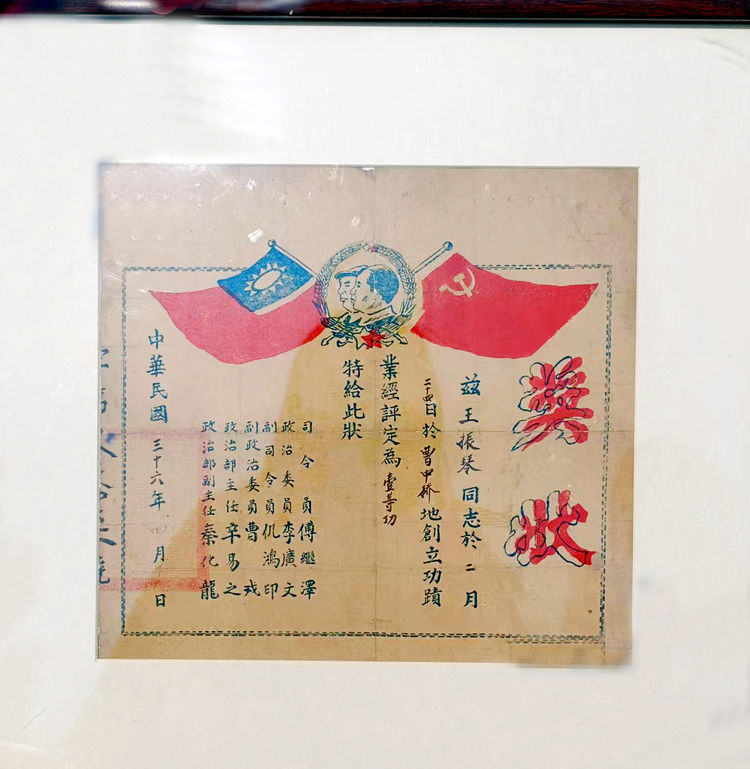 獎狀
茲王振琴同志於二月
二十四日於曹甲桥地創立功蹟
業經評定為壹等功
特給此狀
司令員傅繼澤
政治委員李廣文
副司令員仉鴻印
副政治委員曹戎
政治部主任辛易之
政治部副主任秦化龍
中華民國三十六年四月日